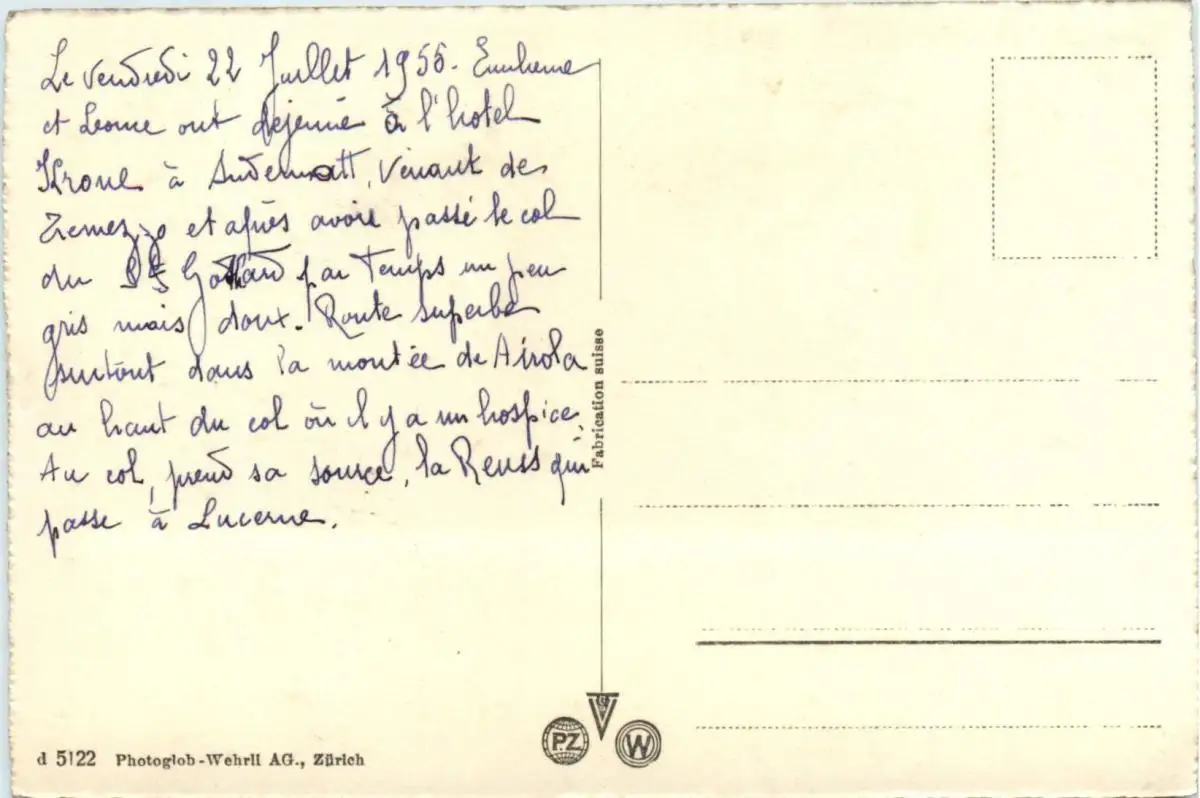 Le Vendredi 22 Juillet 1955.
et ont déjeuné à l'hotel
Krone à Andermatt, Venant de
Tremezzo et après avoir passé le col
du St Gothard par Temps un peu
gris mais doux. Route superbe
surtout dans la montée de Airola
au haut du col où il y a un hospice.
Au col, prend sa source, la Reuss qui
passe à Lucerne.
Fabrication suisse
PZ
W
d 5122 Photoglob-Wehrli AG., Zürich